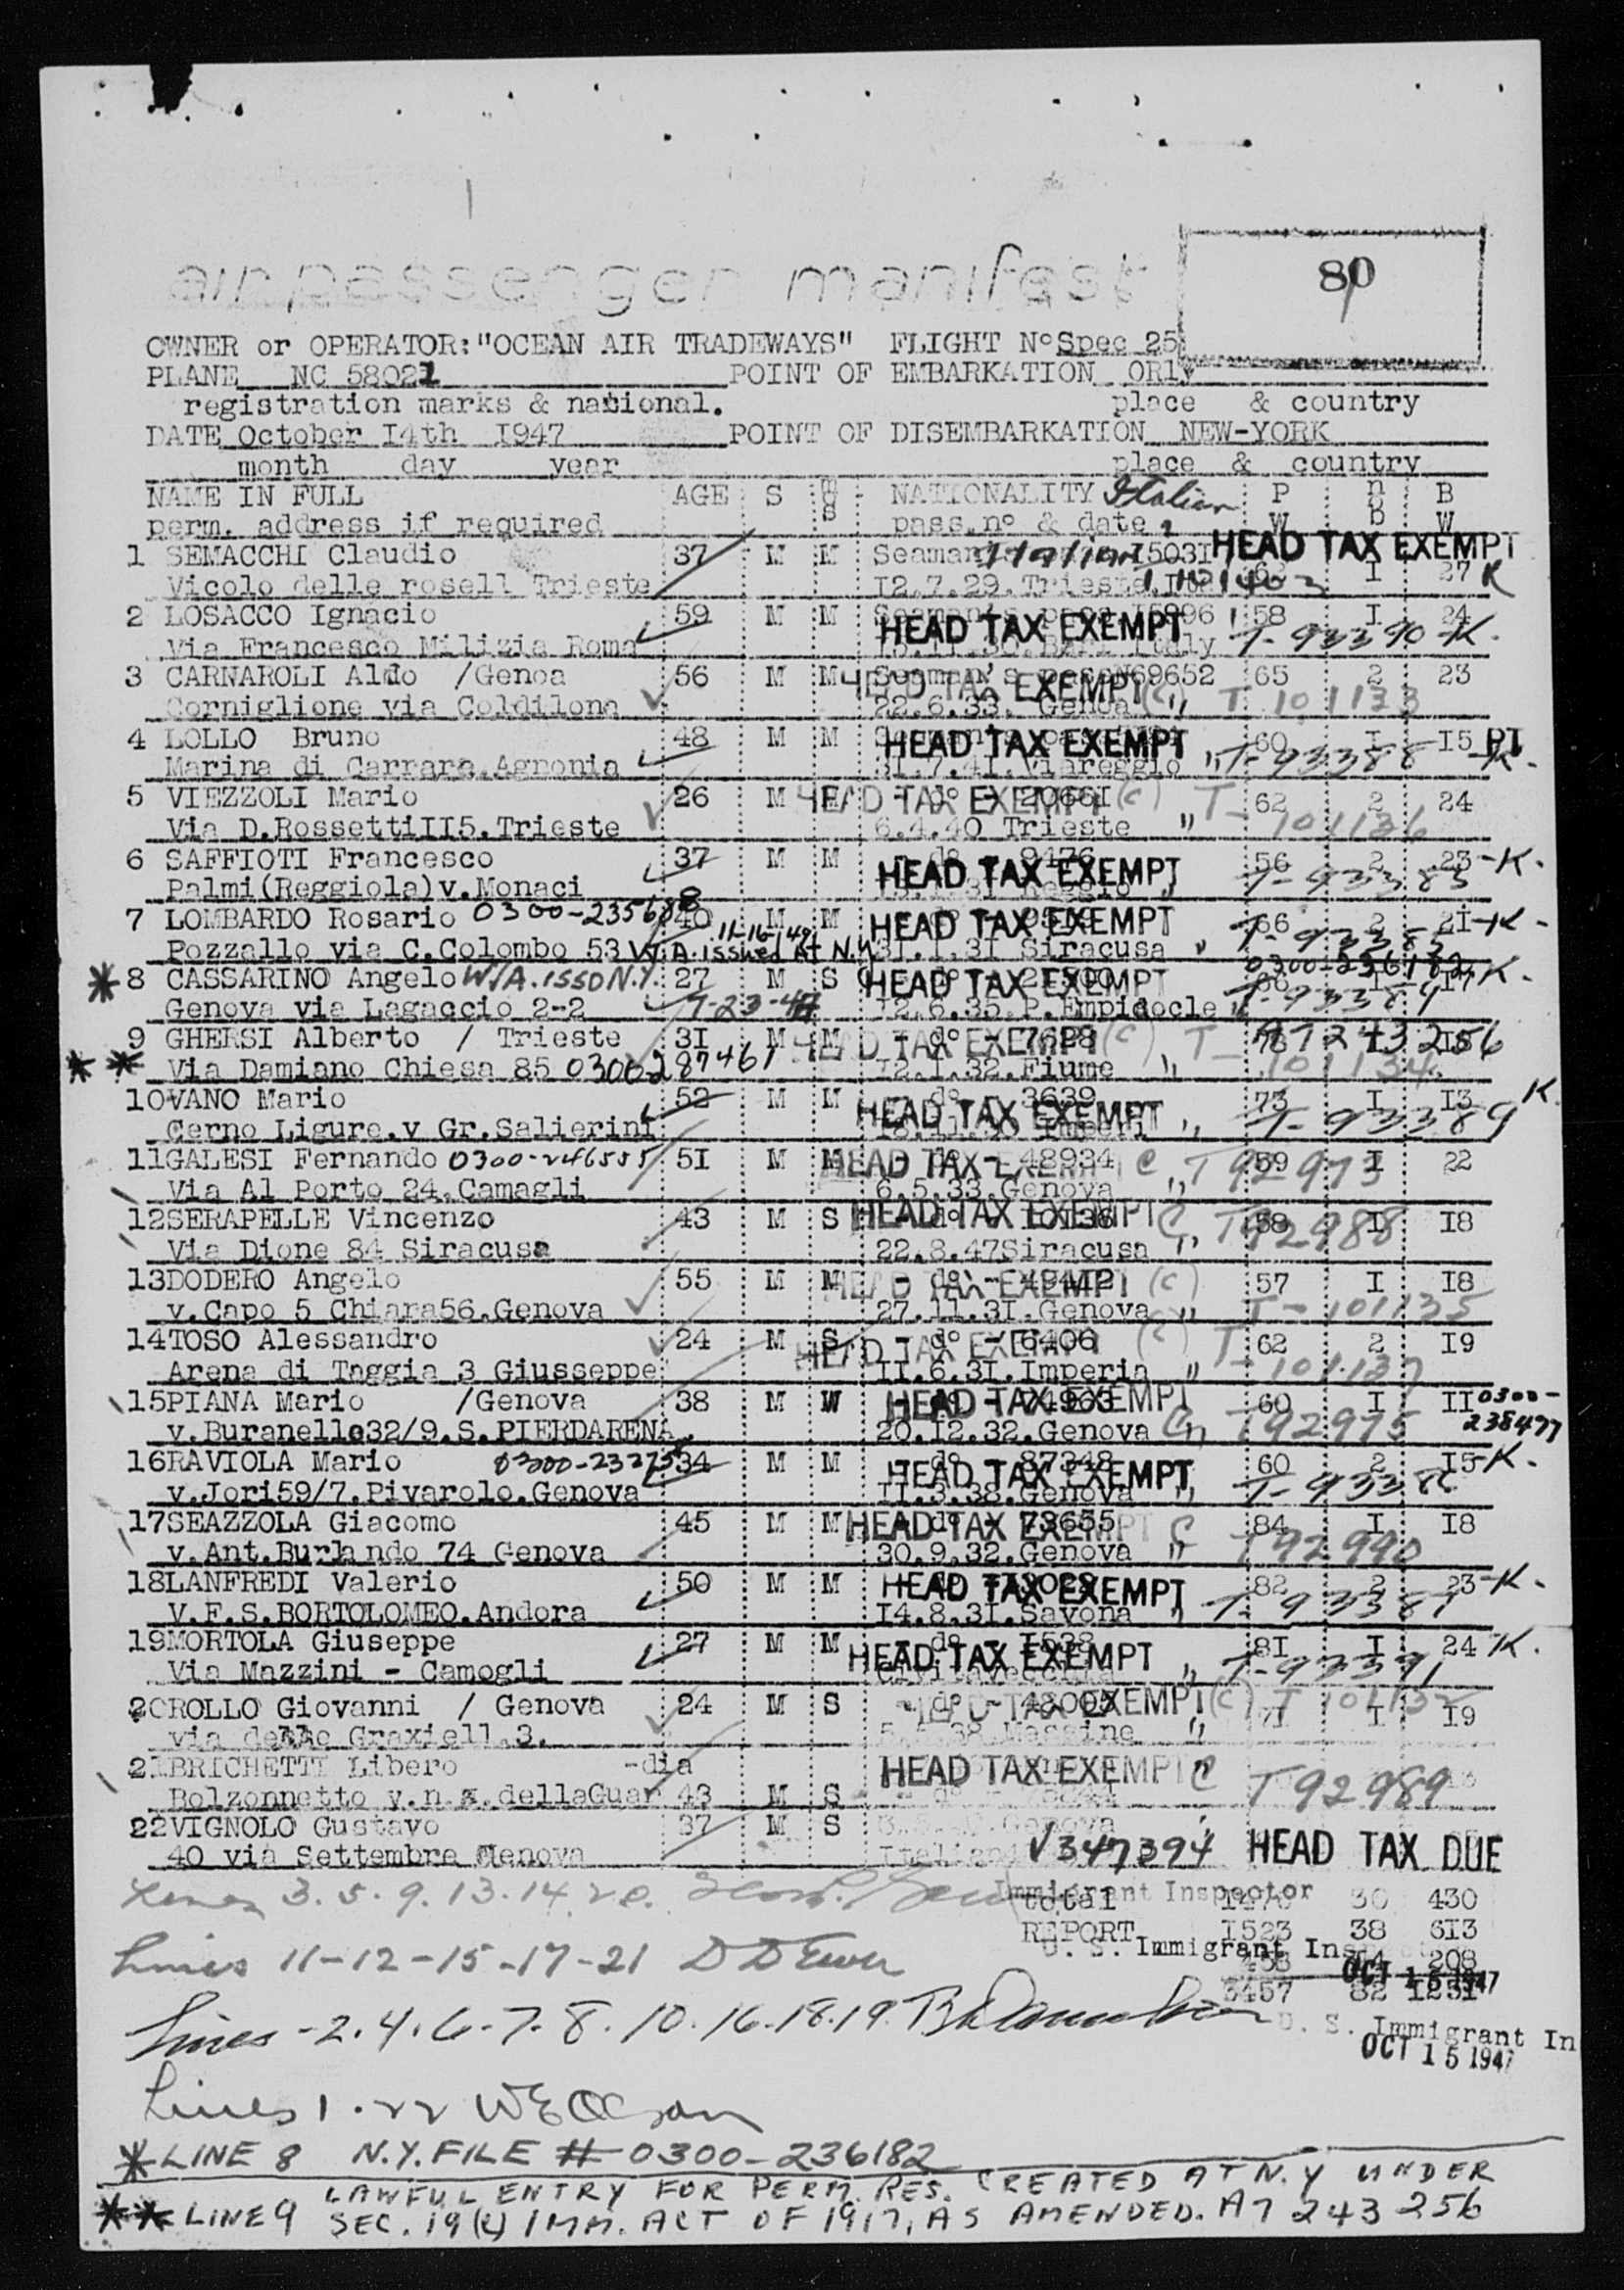 80
air passenger manifest
OWNER or OPERATOR: "OCEAN AIR TRADEWAYS" FLIGHT N° Spec 25
PLANE NC 58021 POINT OF EMBARKATION ORly
registration marks & national. place & country
DATE October I4th I947 POINT OF DISEMBARKATION NEW-YORK
month day year place & country
NAME IN FULL AGE S NATIONALITY Italian P B
perm. address if required pass.n° & date W W
1 SEMACCHI Claudio 37 M M Seaman Italian I503I HEAD TAX EXEMPT
Vicolo delle rosell Trieste I2.7.29.Trieste I 27 K
2 LOSACCO Ignacio 59 M M 58 I 24
Via Francesco Milizia Roma HEAD TAX EXEMPT Italy T-93390-K.
3 CARNAROLI Aldo /Genoa 56 M M Seaman's pass N69652 65 2 23
Corniglione via Coldilona HEAD TAX EXEMPT 22.6.33. Genoa (C) " T 101133
4 LOLLO Bruno 48 M M HEAD TAX EXEMPT 60 I I5 PT
Marina di Carrara.Agronia 3I.7.4I.Viareggio " T-93388 -K.
5 VIEZZOLI Mario 26 M HEAD TAX EXEMPT d° 2066I (C) T- 62 2 24
Via D.RossettiII5.Trieste 6.4.40 Trieste " 101136
6 SAFFIOTI Francesco 37 M M d° 9476 56 2 23-K.
Palmi(Reggiola)v.Monaci HEAD TAX EXEMPT T-93385
7 LOMBARDO Rosario 0300-235688 40 M M HEAD TAX EXEMPT 66 2 2I-K-
Pozzallo via C.Colombo 53 W/A issued At N.Y. 11-16-49 3I.1.3I Siracusa "
*8 CASSARINO Angelo W/A.ISSD N.Y. 27 M S HEAD TAX EXEMPT 0300-236182 I7 K.
Genova via Lagaccio 2-2 I2.6.35.P.Empidocle " T-93384
9 GHERSI Alberto / Trieste 3I M M HEAD TAX EXEMPT d° 7628 (C) T- A7243256
** Via Damiano Chiesa 85 0300-287461 I2.I.32.Fiume " 101134
10 VANO Mario 52 M M d° 3639 73 I I3 K.
Cerno Ligure.v Gr.Salierini HEAD TAX EXEMPT " T-93389
11 GALESI Fernando 0300-246555 5I M M HEAD TAX EXEMPT 48934 C T92973 59 I 22
Via Al Porto 24.Camagli 6.5.33.Genova "
12 SERAPELLE Vincenzo 43 M S HEAD TAX EXEMPT C T92988 58 I I8
Via Dione 84 Siracusa 22.8.47Siracusa "
13 DODERO Angelo 55 M M HEAD TAX EXEMPT d° (C) 57 I I8
v.Capo 5 Chiara56.Genova 27.11.3I.Genova " T-101135
14 TOSO Alessandro 24 M S HEAD TAX EXEMPT d° 6406 (C) T- 62 2 I9
Arena di Taggia 3 Giusseppe II.6.3I.Imperia " 101137
15 PIANA Mario /Genova 38 M W HEAD TAX EXEMPT 60 I II 0300-
v.Buranello32/9.S.PIERDARENA. 20.I2.32.Genova C " T92975 238477
16 RAVIOLA Mario 34 M M d° 87348 60 2 I5-K.
v.Jori59/7.Pivarolo.Genova HEAD TAX EXEMPT II.3.38.Genova "
17 SEAZZOLA Giacomo 45 M M HEAD TAX EXEMPT d° 73655 C 84 I I8
v.Ant.Burlando 74 Genova 30.9.32.Genova " T92990
18 LANFREDI Valerio 50 M M HEAD TAX EXEMPT 82 2 23-K.
V.F.S.BORTOLOMEO.Andora I4.8.3I.Savona " T-93387
19 MORTOLA Giuseppe 27 M M d° 8I I 24 K.
Via Mazzini - Camogli HEAD TAX EXEMPT " T-93391
20 ROLLO Giovanni / Genova 24 M S d° 48005 HEAD TAX EXEMPT (C) T 101132 7I I I9
via delle Graxiell.3. "
21 BRICHETTI Libero -dia HEAD TAX EXEMPT C T92989
Bolzonnetto v.n.s.dellaGuar 43 M S
22 VIGNOLO Gustavo 37 M S Genova
40 via Settembre Genova Italian V347394 HEAD TAX DUE
Lines 3.5.9.13.14.20. Immigrant Inspector
total 1476 30 430
REPORT I523 38 6I3
Lines 11-12-15-17-21 U. S. Immigrant Ins
458 I4 208
OCT 15 1947
3457 82 I25I
Lines -2.4.6-7.8.10.16.18.19. U. S. Immigrant In
OCT 15 1947
Lines 1.22
*LINE 8 N.Y. FILE # 0300-236182
**LINE 9 LAWFUL ENTRY FOR PERM. RES. CREATED AT N.Y UNDER
SEC. 19(c) IMM. ACT OF 1917, AS AMENDED. A7 243 256